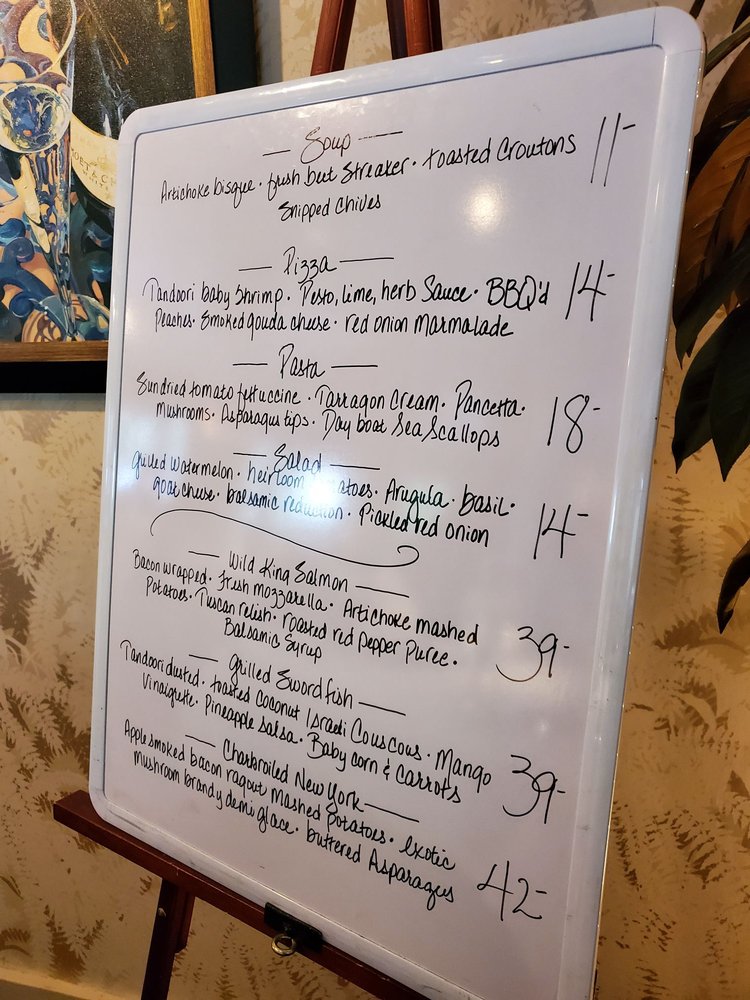 Soup
Artichoke bisque · fresh beet Streaker · toasted Croutons 11-
Snipped Chives
Pizza
Tandoori baby Shrimp · Pesto, lime, herb Sauce · BBQ'd 14-
Peaches · Smoked gouda cheese · red onion Marmalade
Pasta
Sundried tomato fettuccine · Tarragon Cream · Pancetta ·
Mushrooms · Asparagus tips · Day boat Sea Scallops 18-
Salad
Grilled Watermelon · heirloom tomatoes · Arugula · basil ·
goat cheese · balsamic reduction · Pickled red onion 14-
Wild King Salmon
Bacon wrapped · fresh mozzarella · Artichoke mashed
Potatoes · Tuscan relish · roasted red pepper Puree · 39-
Balsamic Syrup
Grilled Swordfish
Tandoori dusted · toasted coconut Israeli Couscous · Mango
Vinaigrette · Pineapple Salsa · Baby corn & Carrots 39-
Charbroiled New York
Applesmoked bacon ragout mashed potatoes · exotic
mushroom brandy demi glace · buttered Asparagus 42-